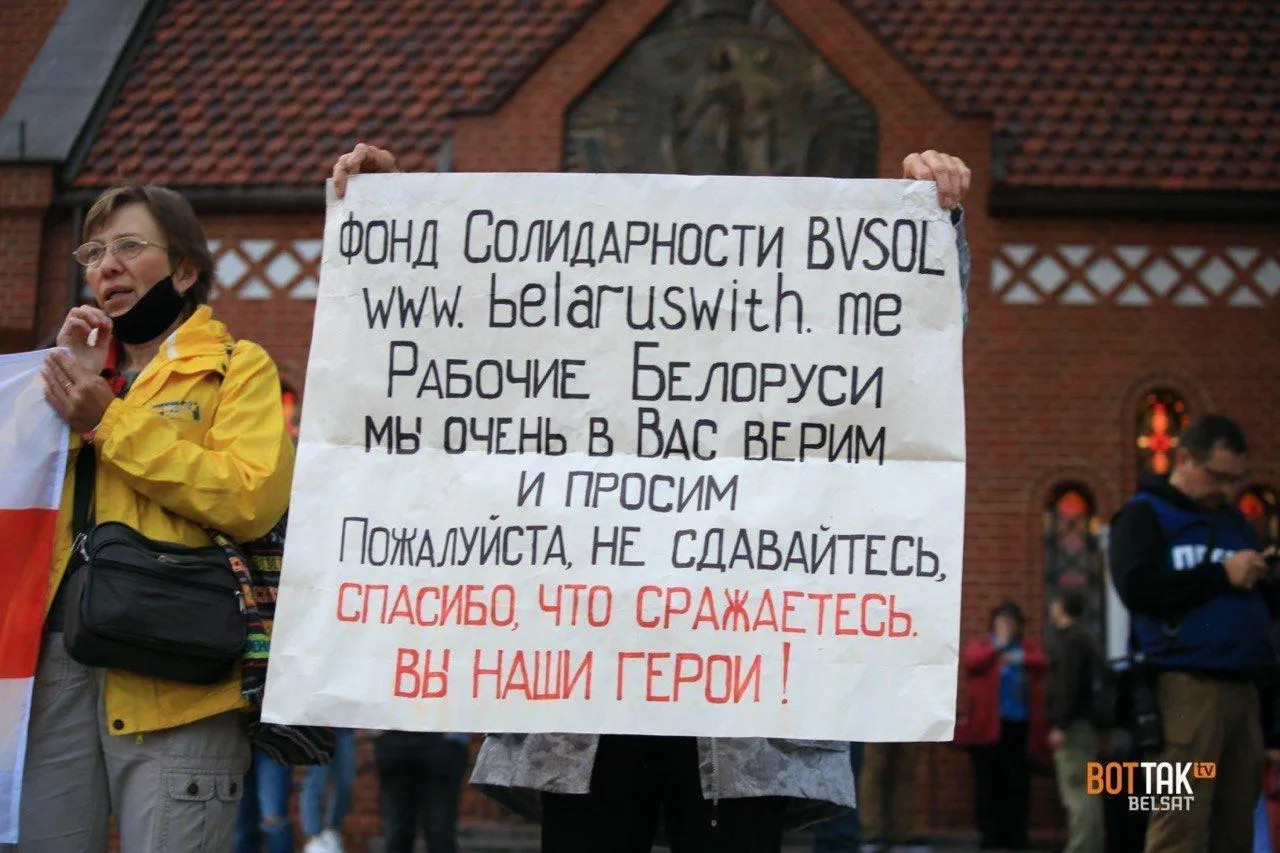 Фонд Солидарности BYSOL
www.belaruswith.me
Рабочие Белоруси
мы очень в Вас верим
и просим
Пожалуйста, не сдавайтесь,
спасибо, что сражаетесь.
Вы наши герои!
ВОТТАК tv
BELSAT